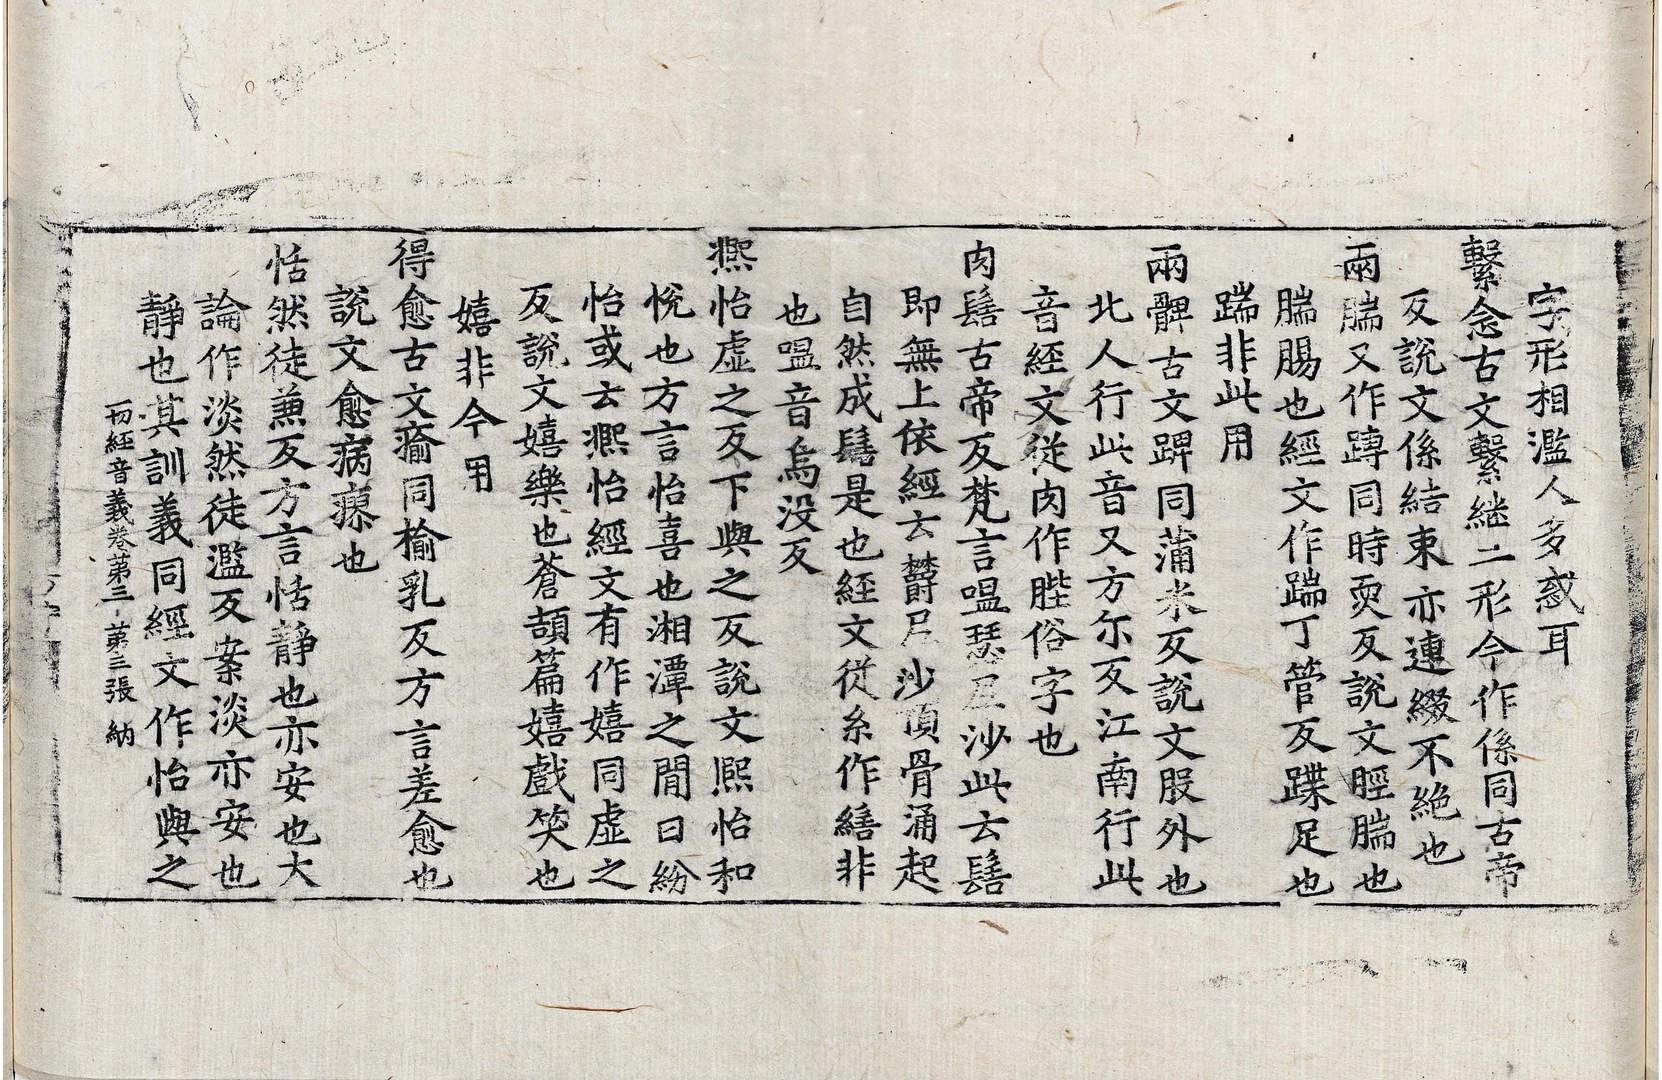 字形相濫人多惑耳
繫念古文繫継二形今作係同古帝
反說文係結束亦連綴不絶也
兩腨又作𨄔同時耎反說文脛腨也
腨腸也經文作踹丁管反踹足也
踹非此用
兩髀古文踔同蒲米反說文股外也
北人行此音又方尔反江南行此
音經文従肉作䏶俗字也
肉髻古帝反梵言嗢瑟尼沙此云髻
即無上依經云欝尼沙頂骨涌起
自然成髻是也経文従糸作繕非
也嗢音烏没反
熈怡虚之反下與之反說文熈怡和
悅也方言怡喜也湘潭之間曰紛
怡或云熈怡經文有作嬉同虚之
反說文嬉樂也蒼頡篇嬉戲笑也
嬉非今用
得愈古文瘉同榆乳反方言差愈也
說文愈病瘳也
恬然徒兼反方言恬靜也亦安也大
論作淡然徒濫反案淡亦安也
靜也其訓義同經文作怡與之
一切經音義卷苐三 苐三張 納